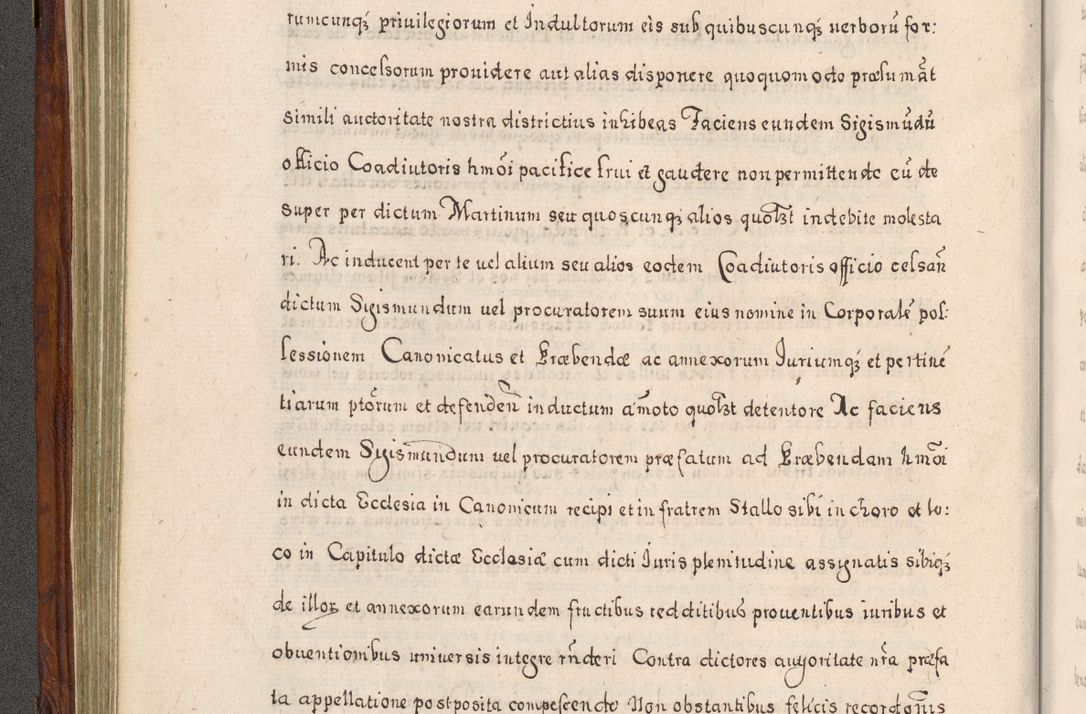 rumcunqȝ priuilegiorum et Indultorum eis sub quibuscunqȝ uerborū for:
mis concessorum prouidere aut alias disponere quoquomodo præsumāt
simili auctoritate nostra districtius inhibeas Faciens eundem Sigismūdū
officio Coadiutoris hmōi pacifice frui et gaudere non permittendo cū de
super per dictum Martinum seu quoscunqȝ alios quolꝫt indebite molesta
ri. Ac inducent per te uel alium seu alios eodem Coadiutoris officio cessan̄
dictum Sigismundum uel procuratorem suum eius nomine in Corporalē pos:
sessionem Canonicatus et Præbendæ ac annexorum Iuriumqȝ et pertinē
tiarum ptōrum et defenden̄ inductum amōto quolꝫt detentore Ac faciens
eundem Sigismundum uel procuratorem præfatum ad Præbendam hmōi
in dicta Ecclesia in Canonicum recipi et in fratrem Stallo sibi in choro et lo:
co in Capitulo dictæ Ecclesiæ cum dicti Iuris plenitudine assignatis sibiqȝ
de illoꝝ et annexorum earundem fructibus redditibus prouentibus iuribus et
obuentionibus uniuersis integre rn̄deri Contra dictores auctoritate nr̄a præfa
ta appellatione postposita compescendo Non obstantibus felicis recordōnis